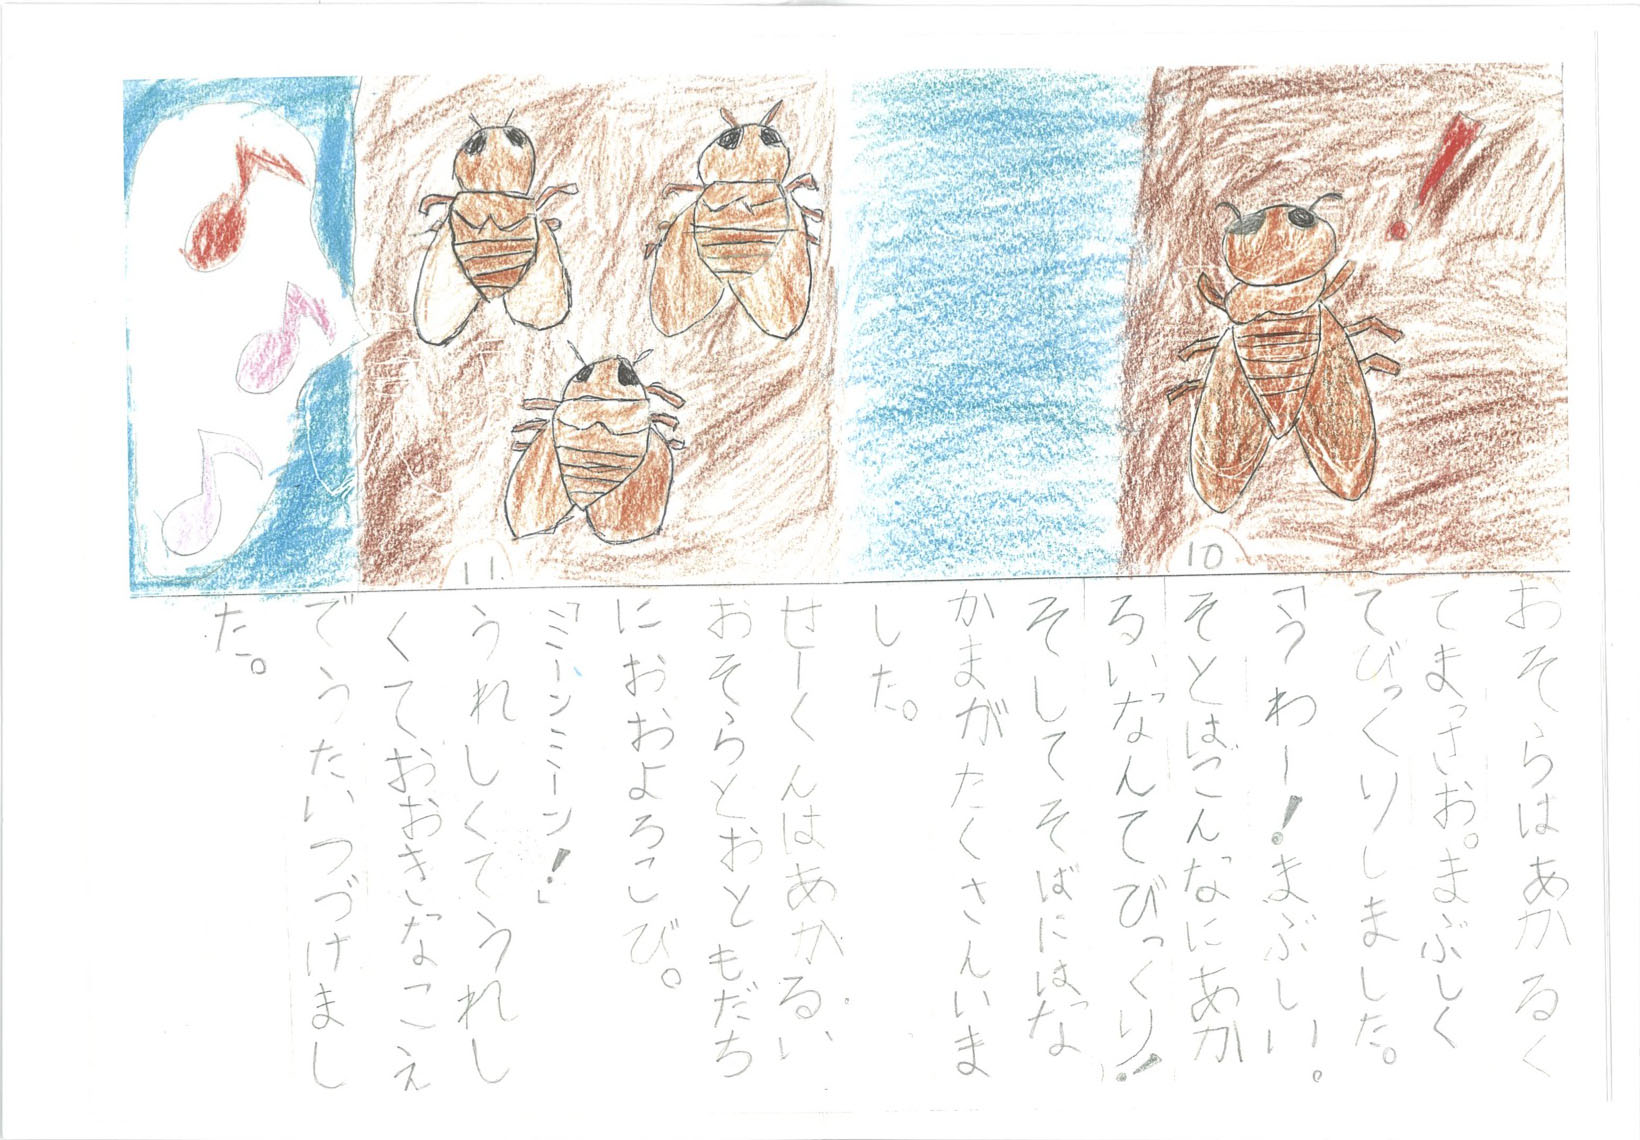 10
おそらはあかるく
てまっさお。まぶしく
てびっくりしました。
「うわー!まぶしい。
そとはこんなにあか
るいなんてびっくり!
そしてそばにはな
かまがたくさんいま
した。
11
せーくんはあかるい
おそらとおともだち
におおよろこび。
「ミーンミーン!」
うれしくてうれし
くておおきなこえ
でうたいつづけまし
た。